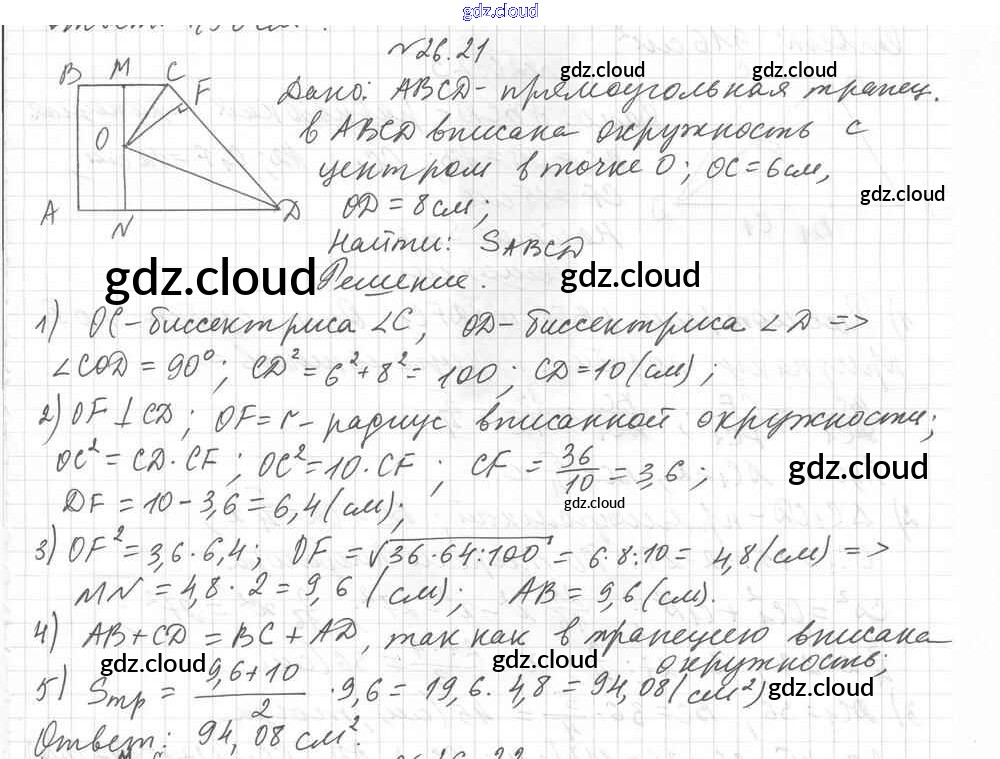 gdz.cloud
№26.21
B M C F
O
A N D
Дано: ABCD - прямоугольная трапец.
в ABCD вписана окружность с
центром в точке O; OC = 6 см,
OD = 8 см;
Найти: S_ABCD
Решение.
1) OC - биссектриса ∠C, OD - биссектриса ∠D =>
∠COD = 90°; CD² = 6² + 8² = 100; CD = 10 (см);
2) OF ⊥ CD; OF = r - радиус вписанной окружности;
OC² = CD · CF; OC² = 10 · CF; CF = 36/10 = 3,6;
DF = 10 - 3,6 = 6,4 (см);
3) OF² = 3,6 · 6,4; OF = √36·64:100 = 6·8:10 = 4,8 (см) =>
MN = 4,8 · 2 = 9,6 (см); AB = 9,6 (см).
4) AB + CD = BC + AD, так как в трапецию вписана
окружность;
5) Sтр = (9,6 + 10)/2 · 9,6 = 19,6 · 4,8 = 94,08 (см²)
Ответ: 94,08 см².
gdz.cloud
gdz.cloud
gdz.cloud
gdz.cloud
gdz.cloud
gdz.cloud
gdz.cloud
gdz.cloud
gdz.cloud
gdz.cloud
gdz.cloud